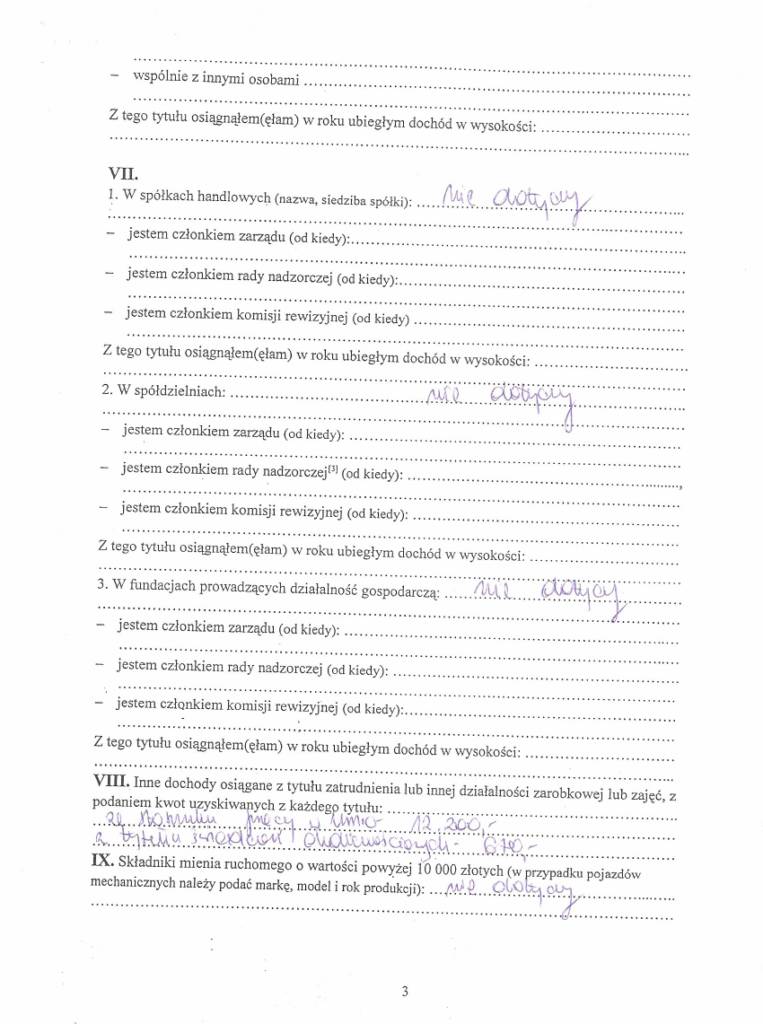 – wspólnie z innymi osobami
Z tego tytułu osiągnąłem(ęłam) w roku ubiegłym dochód w wysokości:
VII.
1. W spółkach handlowych (nazwa, siedziba spółki): nie dotyczy
– jestem członkiem zarządu (od kiedy):
– jestem członkiem rady nadzorczej (od kiedy):
– jestem członkiem komisji rewizyjnej (od kiedy)
Z tego tytułu osiągnąłem(ęłam) w roku ubiegłym dochód w wysokości:
2. W spółdzielniach: nie dotyczy
– jestem członkiem zarządu (od kiedy):
– jestem członkiem rady nadzorczej[3] (od kiedy):
– jestem członkiem komisji rewizyjnej (od kiedy):
Z tego tytułu osiągnąłem(ęłam) w roku ubiegłym dochód w wysokości:
3. W fundacjach prowadzących działalność gospodarczą: nie dotyczy
– jestem członkiem zarządu (od kiedy):
– jestem członkiem rady nadzorczej (od kiedy):
– jestem członkiem komisji rewizyjnej (od kiedy):
Z tego tytułu osiągnąłem(ęłam) w roku ubiegłym dochód w wysokości:
VIII. Inne dochody osiągane z tytułu zatrudnienia lub innej działalności zarobkowej lub zajęć, z
podaniem kwot uzyskiwanych z każdego tytułu:
ze stosunku pracy w 12.200,-
z tytułu
IX. Składniki mienia ruchomego o wartości powyżej 10 000 złotych (w przypadku pojazdów
mechanicznych należy podać markę, model i rok produkcji): nie dotyczy
3